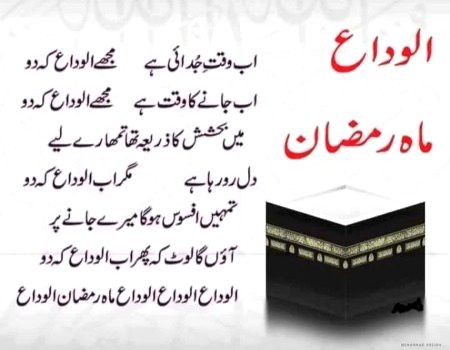 الوداع
ماہ رمضان
اب وقتِ جُدائی ہے مجھے الوداع کہ دو
اب جانے کا وقت ہے مجھے الوداع کہ دو
میں بخشش کا ذریعہ تھا تمھارے لیے
دل رو رہا ہے مگر اب الوداع کہ دو
تمہیں افسوس ہوگا میرے جانے پر
آؤں گا لوٹ کہ پھر اب الوداع کہ دو
الوداع الوداع الوداع ماہ رمضان الوداع